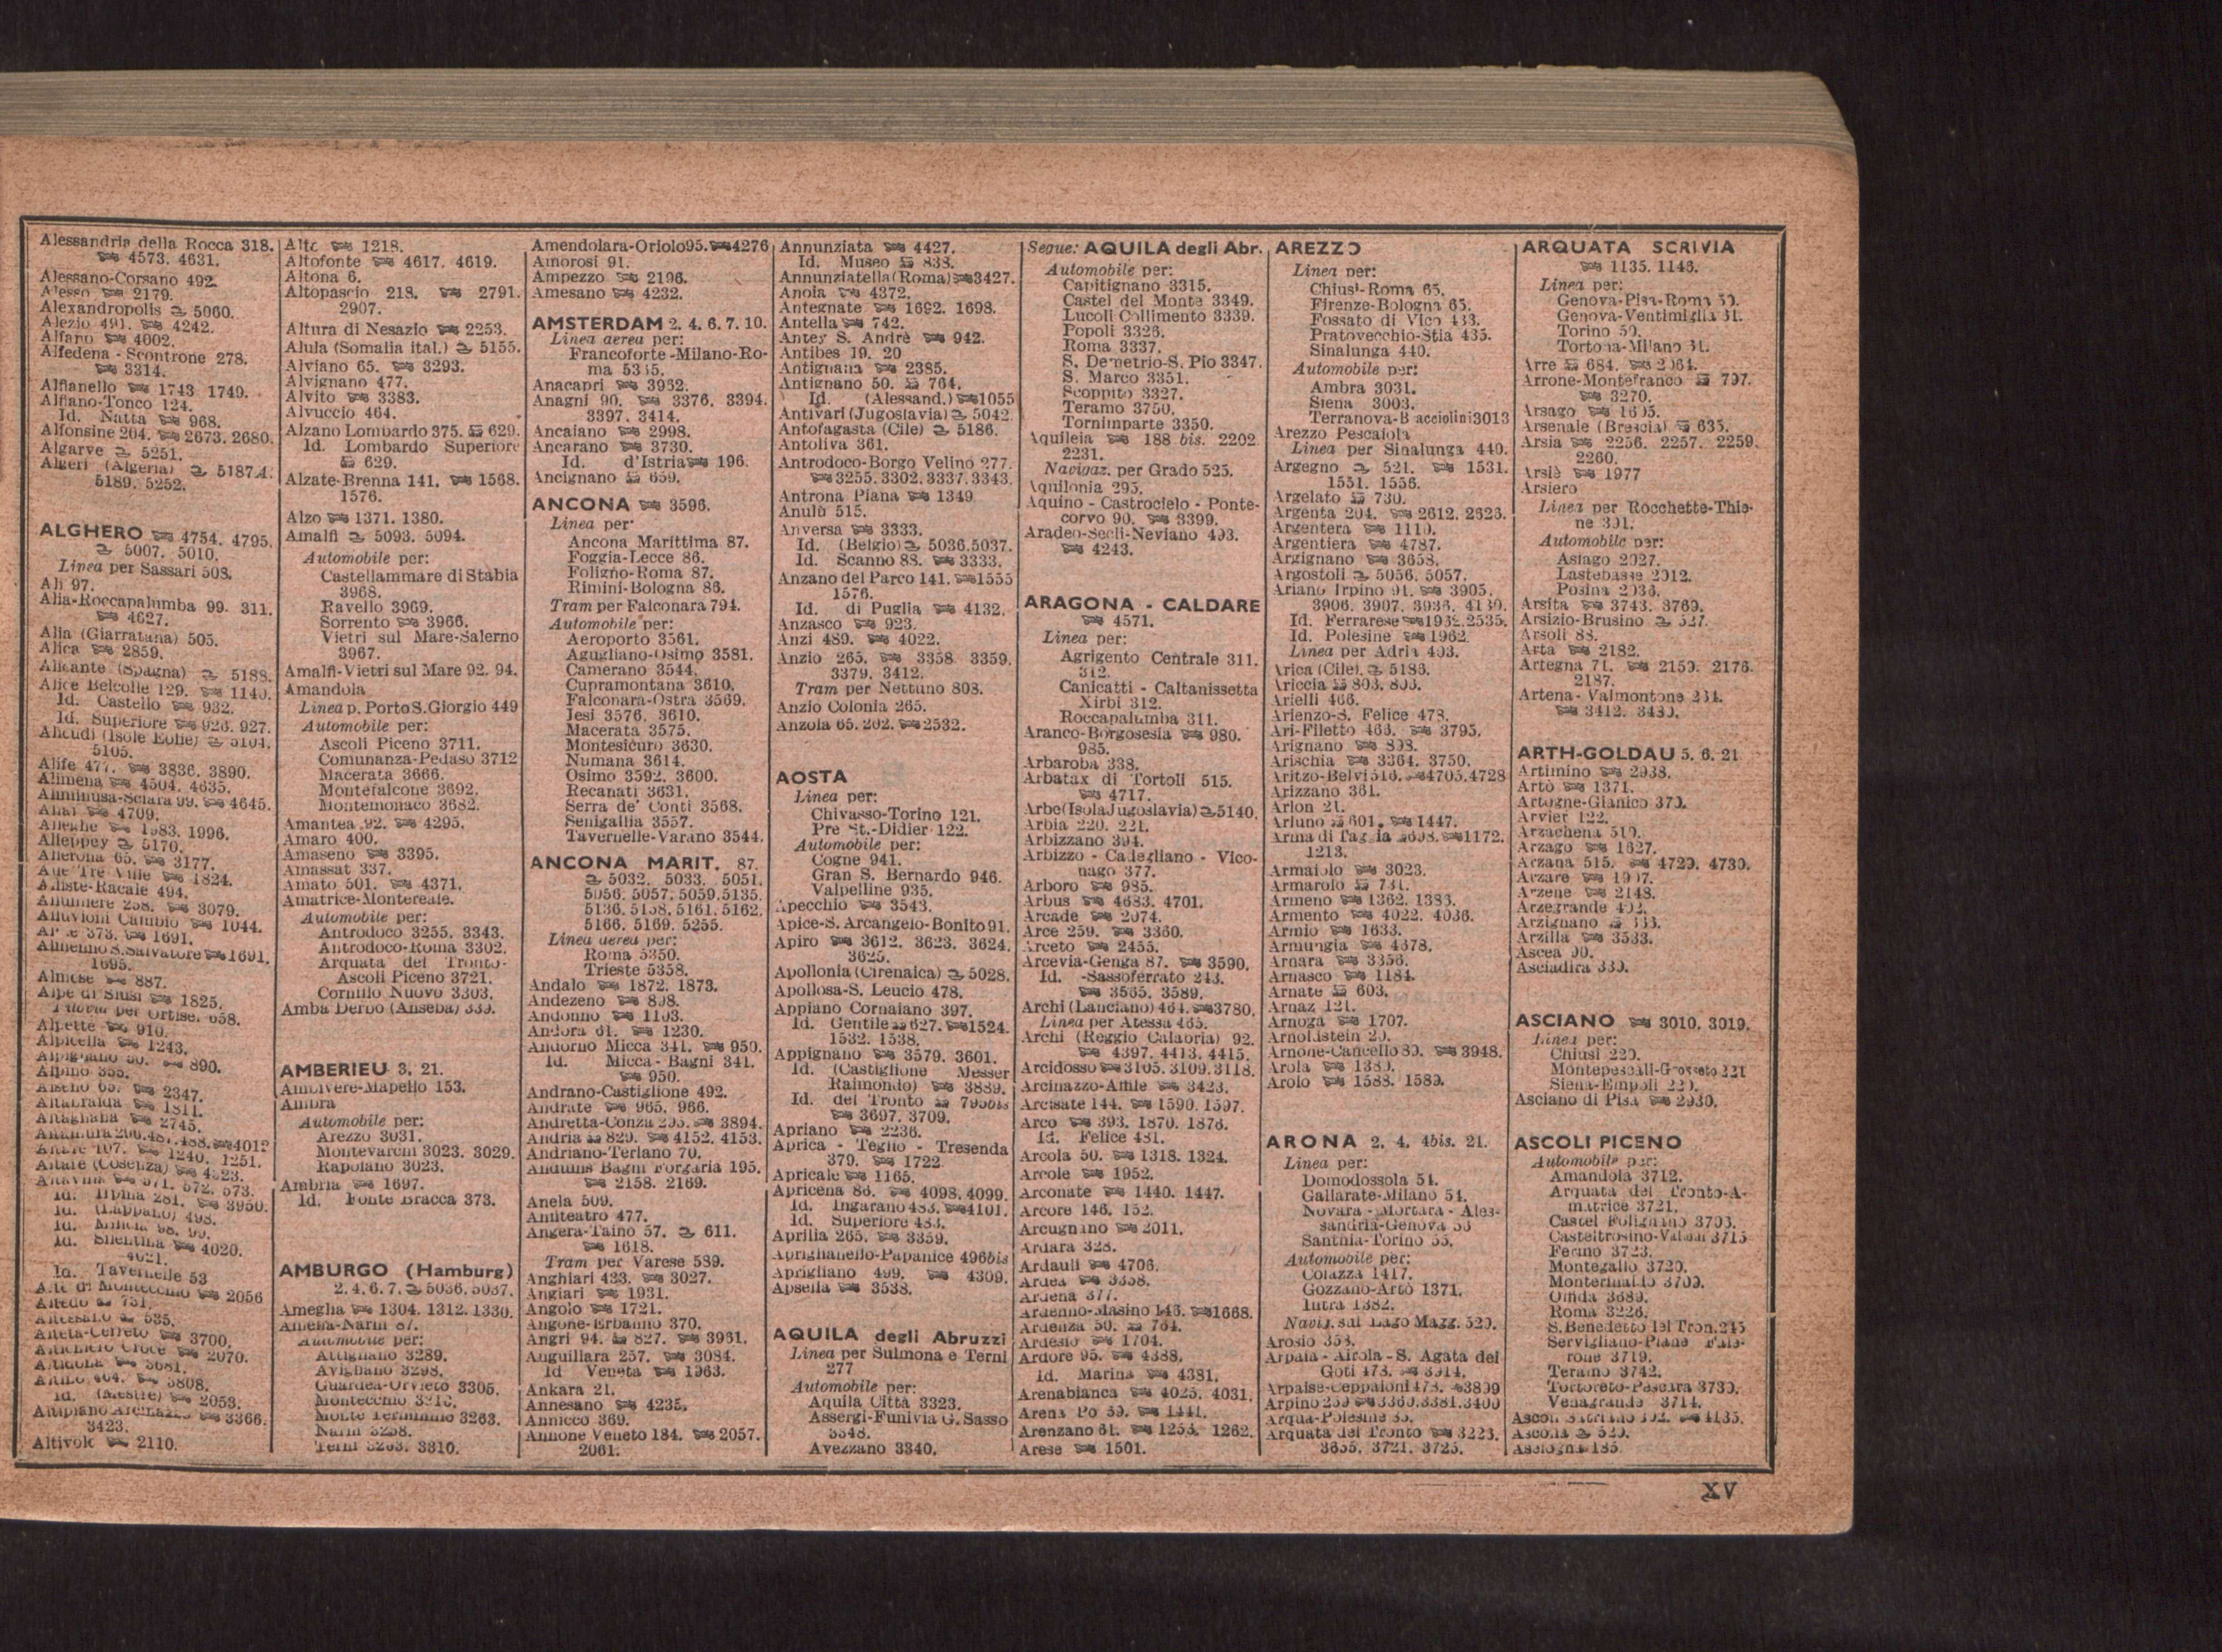 Alessandria della Rocca 318.
4573. 4631.
Alessano-Corsano 492.
Alesso 2179.
Alexandropolis 5060.
Alezio 491. 4242.
Alfano 4002.
Alfedena - Scontrone 278.
3314.
Alfianello 1743 1749.
Alfiano-Tonco 124.
Id. Natta 968.
Alfonsine 204. 2673. 2680.
Algarve 5251.
Algeri (Algeria) 5187A.
5189. 5252.
ALGHERO 4754. 4795.
5007. 5010.
Linea per Sassari 508.
Alì 97.
Alia-Roccapalumba 99. 311.
4627.
Alia (Giarratana) 505.
Alica 2859.
Alicante (Spagna) 5188.
Alice Belcolle 129. 1140.
Id. Castello 932.
Id. Superiore 926. 927.
Alicudi (Isole Eolie) 5104.
5105.
Alife 477. 3836. 3890.
Alimena 4504. 4635.
Aliminusa-Sciara 99. 4645.
4709.
Alleghe 1983. 1996.
Alleppey 5170.
Allerona 65. 3177.
1824.
Alliste-Racale 494.
Allumiere 258. 3079.
Alluvioni Cambiò 1044.
373. 1691.
Almenno S. Salvatore 1691.
1695.
Almese 887.
Alpe di Siusi 1825.
Filovia per Ortise. 658.
Alpette 910.
Alpicella 1243.
Alpignano 50. 890.
Alpino 355.
2347.
1811.
2745.
Altamura 4012
Altare 107. 1240. 1251.
Altare (Cosenza) 4323.
Altavilla 571. 572. 573.
Id. Irpina 281. 3950.
Id. (Lappano) 498.
Id. Milicia 98. 99.
Id. Silentina 4020.
4021.
Id. Tavernelle 53
2056
Altedo 731.
535.
3700.
2070.
Altidona 3681.
Altino 464. 3808.
Id. (Mestre) 2053.
Altipiano Arcinazzo 3366.
3423.
Altivole 2110.
Alto 1218.
Altofonte 4617. 4619.
Altona 6.
Altopascio 218. 2791.
2907.
Altura di Nesazio 2253.
Alula (Somalia ital.) 5155.
Alviano 65. 3293.
Alvignano 477.
Alvito 3383.
Alvuccio 464.
Alzano Lombardo 375. 629.
Id. Lombardo Superiore
629.
Alzate-Brenna 141. 1568.
1576.
Alzo 1371. 1380.
Amalfi 5093. 5094.
Automobile per:
Castellammare di Stabia
3968.
Ravello 3969.
Sorrento 3966.
Vietri sul Mare-Salerno
3967.
Amalfi-Vietri sul Mare 92. 94.
Amandola
Linea p. Porto S. Giorgio 449
Automobile per:
Ascoli Piceno 3711.
Comunanza-Pedaso 3712
Macerata 3666.
Montefalcone 3692.
Montemonaco 3682.
Amantea 92. 4295.
Amaro 400.
Amaseno 3395.
Amassat 337.
Amato 501. 4371.
Amatrice-Montereale.
Automobile per:
Antrodoco 3255. 3343.
Antrodoco-Roma 3302.
Arquata del Tronto-
Ascoli Piceno 3721.
Cornillo Nuovo 3303.
Amba Derho (Anseba) 339.
AMBERIEU 3. 21.
Ambivere-Mapello 153.
Ambra
Automobile per:
Arezzo 3031.
Montevarchi 3023. 3029.
Rapolano 3023.
Ambria 1697.
Id. Fonte Bracca 373.
AMBURGO (Hamburg)
2. 4. 6. 7. 5036. 5037.
Ameglia 1304. 1312. 1330.
Amelia-Narni 87.
Automobile per:
Attigliano 3289.
Avigliano 3298.
Guardea-Orvieto 3305.
Montecchio
Monte Terminillo 3263.
Narni 3258.
Terni 3263. 3310.
Amendolara-Oriolo 95. 4276
Amorosi 91.
Ampezzo 2196.
Amesano 4232.
AMSTERDAM 2. 4. 6. 7. 10.
Linea aerea per:
Francoforte-Milano-Ro-
ma 5345.
Anacapri 3962.
Anagni 90. 3376. 3394.
3397. 3414.
Ancaiano 2998.
Ancarano 3730.
Id. d'Istria 196.
Ancignano 659.
ANCONA 3596.
Linea per:
Ancona Marittima 87.
Foggia-Lecce 86.
Foligno-Roma 87.
Rimini-Bologna 86.
Tram per Falconara 794.
Automobile per:
Aeroporto 3561.
Agugliano-Osimo 3581.
Camerano 3544.
Cupramontana 3610.
Falconara-Ostra 3569.
Jesi 3576. 3610.
Macerata 3575.
Montesicuro 3630.
Numana 3614.
Osimo 3592. 3600.
Recanati 3631.
Serra de' Conti 3568.
Senigallia 3557.
Tavernelle-Varano 3544.
ANCONA MARIT. 87.
5032. 5033. 5051.
5056. 5057. 5059. 5135.
5136. 5158. 5161. 5162.
5166. 5169. 5255.
Linea aerea per:
Roma 5350.
Trieste 5358.
Andalo 1872. 1873.
Andezeno 898.
Andonno 1103.
Andora 61. 1230.
Andorno Micca 341. 950.
Id. Micca - Bagni 341.
950.
Andrano-Castiglione 492.
Andrate 965. 966.
Andretta-Conza 295. 3894.
Andria 829. 4152. 4153.
Andriano-Terlano 70.
Anduins Bagni Forgaria 195.
2158. 2169.
Anela 509.
Anfiteatro 477.
Angera-Taino 57. 611.
1618.
Tram per Varese 589.
Anghiari 433. 3027.
Angiari 1931.
Angolo 1721.
Angone-Erbanno 370.
Angri 94. 827. 3961.
Anguillara 257. 3084.
Id Veneta 1963.
Ankara 21.
Annesano 4235.
Annicco 369.
Annone Veneto 184. 2057.
2061.
Annunziata 4427.
Id. Museo 838.
Annunziatella (Roma) 3427.
Anoia 4372.
Antegnate 1692. 1698.
Antella 742.
Antey S. Andrè 942.
Antibes 19. 20
Antignana 2385.
Antignano 50. 764.
Id. (Alessand.) 1055
Antivari (Jugoslavia) 5042.
Antofagasta (Cile) 5186.
Antoliva 361.
Antrodoco-Borgo Velino 277.
3255. 3302. 3337. 3343.
Antrona Piana 1349.
Anulù 515.
Anversa 3333.
Id. (Belgio) 5036. 5037.
Id. Scanno 88. 3333.
Anzano del Parco 141. 1555
1576.
Id. di Puglia 4132.
Anzasco 923.
Anzi 489. 4022.
Anzio 265. 3358 3359.
3379. 3412.
Tram per Nettuno 808.
Anzio Colonia 265.
Anzola 65. 202. 2532.
AOSTA
Linea per:
Chivasso-Torino 121.
Pre St.-Didier 122.
Automobile per:
Cogne 941.
Gran S. Bernardo 946.
Valpelline 935.
Apecchio 3543.
Apice-S. Arcangelo-Bonito 91.
Apiro 3612. 3623. 3624.
3625.
Apollonia (Cirenaica) 5028.
Apollosa-S. Leucio 478.
Appiano Cornaiano 397.
Id. Gentile 627. 1524.
1532. 1538.
Appignano 3579. 3601.
Id. (Castiglione Messer
Raimondo) 3889.
Id. del Tronto 795bis
3697. 3709.
Apriano 2236.
Aprica - Teglio - Tresenda
379. 1722
Apricale 1165.
Apricena 86. 4098. 4099.
Id. Ingarano 483. 4101.
Id. Superiore 483.
Aprilia 265. 3359.
Apriglianello-Papanice 496bis
Aprigliano 499. 4309.
Apsella 3538.
AQUILA degli Abruzzi
Linea per Sulmona e Terni
277
Automobile per:
Aquila Città 3323.
Assergi-Funivia G. Sasso
3348.
Avezzano 3340.
Segue: AQUILA degli Abr.
Automobile per:
Capitignano 3315.
Castel del Monte 3349.
Lucoli Collimento 3339.
Popoli 3326.
Roma 3337.
S. Demetrio-S. Pio 3347.
S. Marco 3351.
Scoppito 3327.
Teramo 3750.
Tornimparte 3350.
Aquileia 188 bis. 2202
2231.
Navigaz. per Grado 525.
Aquilonia 295.
Aquino - Castrocielo - Ponte-
corvo 90. 3399.
Aradeo-Seclì-Neviano 493.
4243.
ARAGONA - CALDARE
4571.
Linea per:
Agrigento Centrale 311.
312.
Canicattì - Caltanissetta
Xirbi 312.
Roccapalumba 311.
Aranco-Borgosesia 980.
985.
Arbaroba 338.
Arbatax di Tortolì 515.
4717.
Arbe (Isola Jugoslavia) 5140.
Arbia 220. 221.
Arbizzano 394.
Arbizzo - Cadegliano - Vico-
nago 377.
Arboro 985.
Arbus 4683. 4701.
Arcade 2074.
Arce 259. 3360.
Arceto 2455.
Arcevia-Genga 87. 3590.
Id. -Sassoferrato 243.
3565. 3589.
Archi (Lanciano) 464. 3780.
Linea per Atessa 465.
Archi (Reggio Calabria) 92.
4397. 4413. 4415.
Arcidosso 3105. 3109. 3118.
Arcinazzo-Affile 3423.
Arcisate 144. 1590. 1597.
Arco 393. 1870. 1878.
Id. Felice 481.
Arcola 50. 1318. 1324.
Arcole 1952.
Arconate 1440. 1447.
Arcore 146. 152.
Arcugnano 2011.
Ardara 328.
Ardauli 4706.
Ardea 3358.
Ardena 377.
Ardenno-Masino 146. 1668.
Ardenza 50. 764.
Ardesio 1704.
Ardore 95. 4388.
Id. Marina 4381.
Arenabianca 4025. 4031.
Arena Po 39. 1441.
Arenzano 61. 1253. 1262.
Arese 1501.
AREZZO
Linea per:
Chiusi-Roma 65.
Firenze-Bologna 65.
Fossato di Vico 433.
Pratovecchio-Stia 435.
Sinalunga 440.
Automobile per:
Ambra 3031.
Siena 3003.
Terranova-Bracciolini 3013
Arezzo Pescaiola
Linea per Sinalunga 440.
Argegno 521. 1531.
1551. 1556.
Argelato 730.
Argenta 204. 2612. 2626.
Argentera 1110.
Argentiera 4787.
Argignano 3658.
Argostoli 5056. 5057.
Ariano Irpino 91. 3905.
3906. 3907. 3936. 4130.
Id. Ferrarese 1962. 2535.
Id. Polesine 1962.
Linea per Adria 403.
Arica (Cile). 5186.
Ariccia 803. 805.
Arielli 466.
Arienzo-S. Felice 478.
Ari-Filetto 466. 3795.
Arignano 898.
Arischia 3364. 3750.
Aritzo-Belvì 516. 4705. 4728
Arizzano 361.
Arlon 21.
Arluno 601. 1447.
Arma di Taggia 1172.
1213.
Armaiolo 3023.
Armarolo 731.
Armeno 1362. 1383.
Armento 4022. 4036.
Armio 1633.
Armungia 4678.
Arnara 3356.
Arnasco 1184.
Arnate 603.
Arnaz 121.
Arnoga 1707.
Arnoldstein 20.
Arnone-Cancello 89. 3948.
Arola 1380.
Arolo 1588. 1589.
ARONA 2. 4. 4bis. 21.
Linea per:
Domodossola 54.
Gallarate-Milano 54.
Novara - Mortara - Ales-
sandria-Genova 53
Santhià-Torino 55.
Automobile per:
Colazza 1417.
Gozzano-Artò 1371.
Intra 1382.
Navig. sul Lago Magg. 520.
Arosio 358.
Arpaia - Airola - S. Agata dei
Goti 478. 3914.
Arpaise-Ceppaloni 478. 3899
Arpino 259 3360. 3381. 3400
Arquà-Polesine 65.
Arquata del Tronto 3223.
3655. 3721. 3725.
ARQUATA SCRIVIA
1135. 1146.
Linea per:
Genova-Pisa-Roma 50.
Genova-Ventimiglia 31.
Torino 50.
Tortona-Milano 31.
Arre 684. 2064.
Arrone-Montefranco 797.
3270.
Arsago 1605.
Arsenale (Brescia) 635.
Arsia 2256. 2257. 2259.
2260.
Arsiè 1977
Arsiero
Linea per Rocchette-Thie-
ne 391.
Automobile per:
Asiago 2027.
Lastebasse 2012.
Posina 2036.
Arsita 3743. 3769.
Arsizio-Brusino 527.
Arsoli 88.
Arta 2182.
Artegna 71. 2150. 2176.
2187.
Artena-Valmontone 264.
3412. 3430.
ARTH-GOLDAU 5. 6. 21
Artimino 2938.
Artò 1371.
Artogne-Gianico 370.
Arvier 122.
Arzachena 510.
Arzago 1627.
Arzana 515. 4720. 4730.
Arzarè 1907.
Arzene 2148.
Arzergrande 402.
Arzignano
Arzilla 3533.
Ascea 90.
Asciadira 330.
ASCIANO 3010. 3019.
Linea per:
Chiusi 220.
Montepescali-Grosseto 221
Siena-Empoli 220.
Asciano di Pisa 2930.
ASCOLI PICENO
Automobile per:
Amandola 3712.
Arquata del Tronto-A-
matrice 3721.
Castel Folignano 3706.
Casteltrosino-Valdai 3715
Fermo 3723.
Montegallo 3720.
Monterinaldo 3709.
Offida 3689.
Roma 3226.
S. Benedetto del Tron. 245
Servigliano-Piane Fale-
rone 3719.
Teramo 3742.
Tortoreto-Pescara 3730.
Venagrande 3714.
Ascoli Satriano 4135.
Ascona 520.
XV